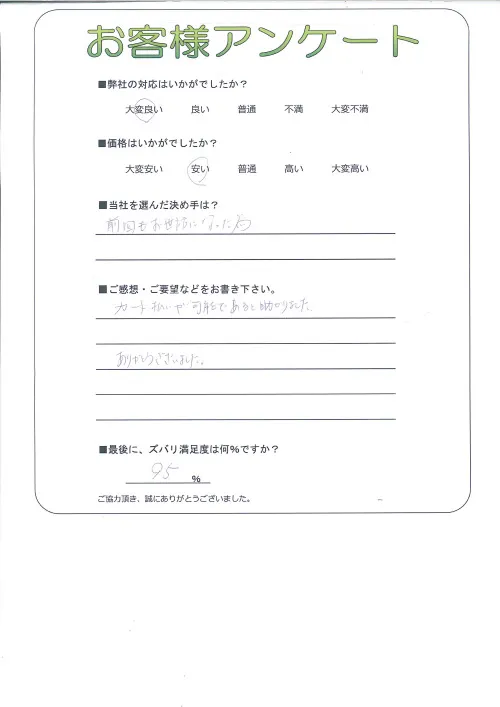 お客様アンケート
■弊社の対応はいかがでしたか？
大変良い 良い 普通 不満 大変不満
■価格はいかがでしたか？
大変安い 安い 普通 高い 大変高い
■当社を選んだ決め手は？
前回もお世話になった為
■ご感想・ご要望などをお書き下さい。
カード払いが可能であると助かりました。
ありがとうございました。
■最後に、ズバリ満足度は何%ですか？
95 %
ご協力頂き、誠にありがとうございました。